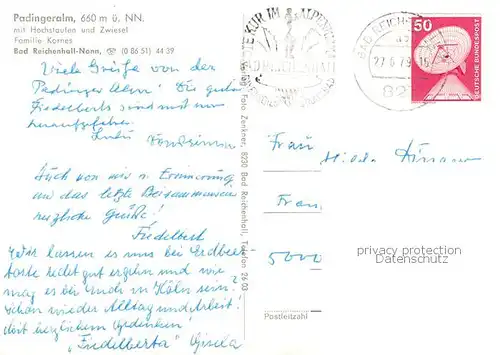 Padingeralm, 660 m ü. NN.
mit Hochstaufen und Zwiesel
Familie Kornes
Bad Reichenhall-Nonn, ☎ (0 86 51) 44 39
Viele Grüße von der
Padinger Alm! Die guten
Fiedelberts sind mit mir
heraufgefahren.
Auch von mir in Erinnerung
an das letzte Beisammensein
herzliche Grüße!
Fiedelbert
Wir lassen es uns bei Erdbeer-
torte redet gut ergehen und wie
mag es bei Euch in Köln sein?
Schon wieder Alltag und Arbeit!
Mit herzlichem Gedenken!
"Fiedelberta" Gisela
Foto Zenkner, 8230 Bad Reichenhall, Telefon 26 03
KUR IM ALPENKLIMA
BAD REICHENHALL
BAD REICHENHALL
27.6.79
82
50
DEUTSCHE BUNDESPOST
Frau
Hilde
5000
Postleitzahl
privacy protection
Datenschutz